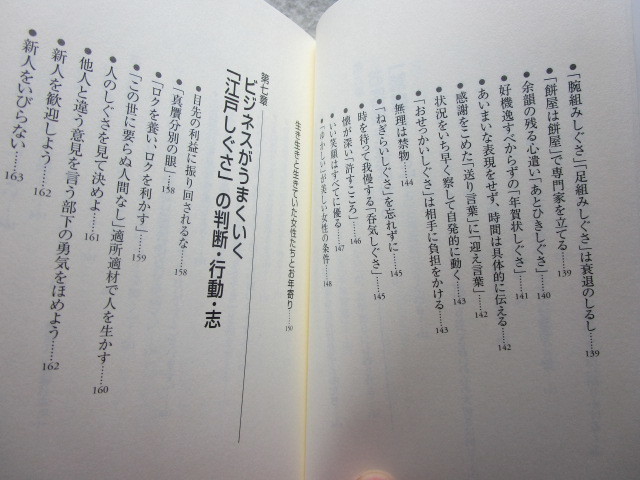 ●「腕組みしぐさ」「足組みしぐさ」は衰退のしるし……139
●「餅屋は餅屋」で専門家を立てる……139
●余韻の残る心遣い「あとひきしぐさ」……140
●好機逸すべからずの「年賀状しぐさ」……141
●あいまいな表現をせず、時間は具体的に伝える……142
●感謝をこめた「送り言葉」「迎え言葉」……142
●状況をいち早く察して自発的に動く……143
●「おせっかいしぐさ」は相手に負担をかける……143
●無理は禁物……144
●「ねぎらいしぐさ」を忘れずに……145
●時を待って我慢する「呑気しぐさ」……145
●懐が深い「許すこころ」……146
●いい笑顔はすべてに優る……147
●「粋かしい」が美しい女性の条件……148
生き生きと生きていた女性たちとお年寄り……151
第七章
ビジネスがうまくいく
「江戸しぐさ」の判断・行動・志
●目先の利益に振り回されるな……158
●「真贋分別の眼」……158
●「ロクを養い、ロクを利かす」……159
●「この世に要らぬ人間なし」適所適材で人を生かす……160
●人のしぐさを見て決めよ……161
●他人と違う意見を言う部下の勇気をほめよう……162
●新人を歓迎しよう……162
●新人をいびらない……163